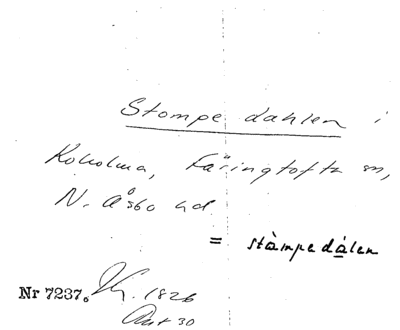 Stompe dahlen i
Roholma, Färingtofta sn,
N. Åsbo hd.
= stàmpedàlen
Nr 7237. 1826
30